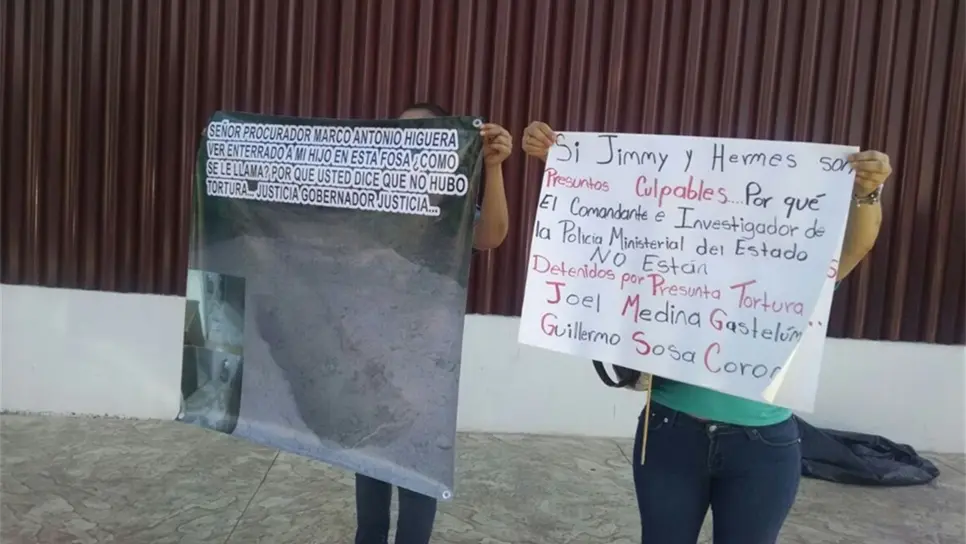 SEÑOR PROCURADOR MARCO ANTONIO HIGUERA
VER ENTERRADO A MI HIJO EN ESTA FOSA ¿COMO
SE LE LLAMA? POR QUE USTED DICE QUE NO HUBO
TORTURA...JUSTICIA GOBERNADOR JUSTICIA...
Si Jimmy y Hermes son
Presuntos Culpables....Por qué
El Comandante e Investigador de
la Policía Ministerial del Estado
NO Están
Detenidos por Presunta Tortura
Joel Medina Gastelúm
Guillermo Sosa